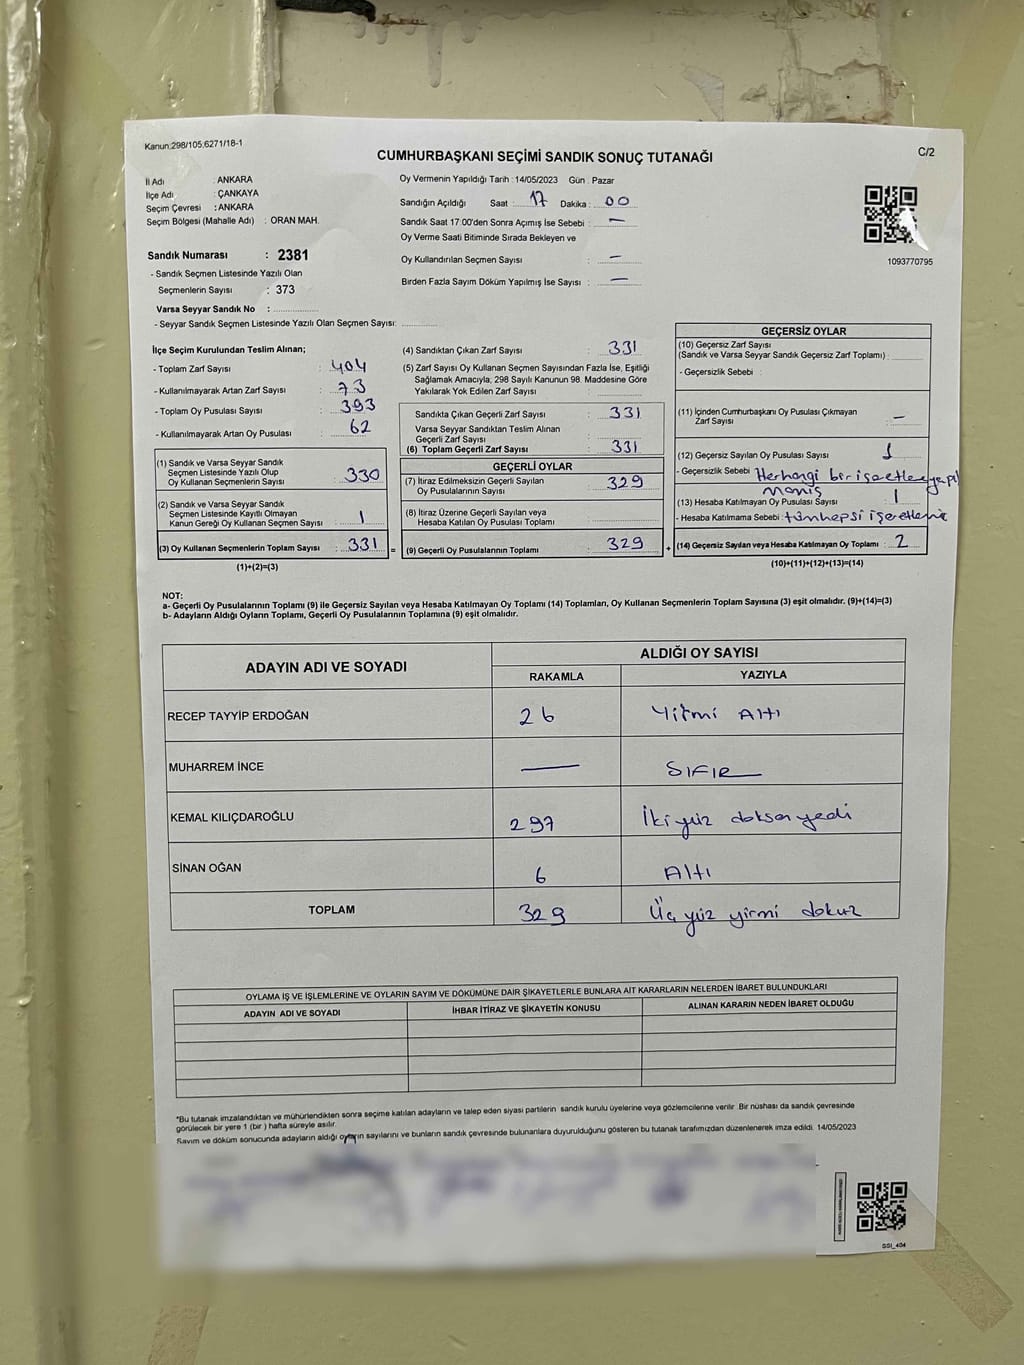 Kanun:298/105,6271/18-1
C/2
CUMHURBAŞKANI SEÇİMİ SANDIK SONUÇ TUTANAĞI
İl Adı : ANKARA
İlçe Adı : ÇANKAYA
Seçim Çevresi : ANKARA
Seçim Bölgesi (Mahalle Adı) : ORAN MAH.
Sandık Numarası : 2381
- Sandık Seçmen Listesinde Yazılı Olan
Seçmenlerin Sayısı : 373
Varsa Seyyar Sandık No :
- Seyyar Sandık Seçmen Listesinde Yazılı Olan Seçmen Sayısı:
Oy Vermenin Yapıldığı Tarih : 14/05/2023 Gün : Pazar
Sandığın Açıldığı Saat : 17 Dakika : 00
Sandık Saat 17:00'den Sonra Açımış İse Sebebi : —
Oy Verme Saati Bitiminde Sırada Bekleyen ve
Oy Kullandırılan Seçmen Sayısı : —
Birden Fazla Sayım Döküm Yapılmış İse Sayısı : —
1093770795
İlçe Seçim Kurulundan Teslim Alınan;
- Toplam Zarf Sayısı : 404
- Kullanılmayarak Artan Zarf Sayısı : 73
- Toplam Oy Pusulası Sayısı : 393
- Kullanılmayarak Artan Oy Pusulası : 62
(1) Sandık ve Varsa Seyyar Sandık
Seçmen Listesinde Yazılı Olup
Oy Kullanan Seçmenlerin Sayısı : 330
(2) Sandık ve Varsa Seyyar Sandık
Seçmen Listesinde Kayıtlı Olmayan
Kanun Gereği Oy Kullanan Seçmen Sayısı : 1
(3) Oy Kullanan Seçmenlerin Toplam Sayısı : 331 =
(1)+(2)=(3)
(4) Sandıktan Çıkan Zarf Sayısı : 331
(5) Zarf Sayısı Oy Kullanan Seçmen Sayısından Fazla İse, Eşitliği
Sağlamak Amacıyla, 298 Sayılı Kanunun 98. Maddesine Göre
Yakılarak Yok Edilen Zarf Sayısı :
Sandıkta Çıkan Geçerli Zarf Sayısı : 331
Varsa Seyyar Sandıktan Teslim Alınan
Geçerli Zarf Sayısı :
(6) Toplam Geçerli Zarf Sayısı : 331
GEÇERLİ OYLAR
(7) İtiraz Edilmeksizin Geçerli Sayılan
Oy Pusulalarının Sayısı : 329
(8) İtiraz Üzerine Geçerli Sayılan veya
Hesaba Katılan Oy Pusulası Toplamı :
(9) Geçerli Oy Pusulalarının Toplamı : 329 +
GEÇERSİZ OYLAR
(10) Geçersiz Zarf Sayısı
(Sandık ve Varsa Seyyar Sandık Geçersiz Zarf Toplamı) :
- Geçersizlik Sebebi :
(11) İçinden Cumhurbaşkanı Oy Pusulası Çıkmayan
Zarf Sayısı : —
(12) Geçersiz Sayılan Oy Pusulası Sayısı : 1
- Geçersizlik Sebebi : Herhangi bir işaretleme
(13) Hesaba Katılmayan Oy Pusulası Sayısı : 1
- Hesaba Katılmama Sebebi : tümhepsi
(14) Geçersiz Sayılan veya Hesaba Katılmayan Oy Toplamı : 2
(10)+(11)+(12)+(13)=(14)
NOT:
a- Geçerli Oy Pusulalarının Toplamı (9) ile Geçersiz Sayılan veya Hesaba Katılmayan Oy Toplamı (14) Toplamları, Oy Kullanan Seçmenlerin Toplam Sayısına (3) eşit olmalıdır. (9)+(14)=(3)
b- Adayların Aldığı Oyların Toplamı, Geçerli Oy Pusulalarının Toplamına (9) eşit olmalıdır.
ADAYIN ADI VE SOYADI
ALDIĞI OY SAYISI
RAKAMLA YAZIYLA
RECEP TAYYİP ERDOĞAN 26 Yirmi Altı
MUHARREM İNCE — SIFIR
KEMAL KILIÇDAROĞLU 297 İkiyüz doksanyedi
SİNAN OĞAN 6 Altı
TOPLAM 329 Üçyüz yirmi dokuz
OYLAMA İŞ VE İŞLEMLERİNE VE OYLARIN SAYIM VE DÖKÜMÜNE DAİR ŞİKAYETLERLE BUNLARA AİT KARARLARIN NELERDEN İBARET BULUNDUKLARI
ADAYIN ADI VE SOYADI İHBAR İTİRAZ VE ŞİKAYETİN KONUSU ALINAN KARARIN NEDEN İBARET OLDUĞU
*Bu tutanak imzalandıktan ve mühürlendikten sonra seçime katılan adayların ve talep eden siyasi partilerin sandık kurulu üyelerine veya gözlemcilerine verilir. Bir nüshası da sandık çevresinde
görülecek bir yere 1 (bir ) hafta süreyle asılır.
Sayım ve döküm sonucunda adayların aldığı oyların sayılarını ve bunların sandık çevresinde bulunanlara duyurulduğunu gösteren bu tutanak tarafımızdan düzenlenerek imza edildi. 14/05/2023
SSI_404